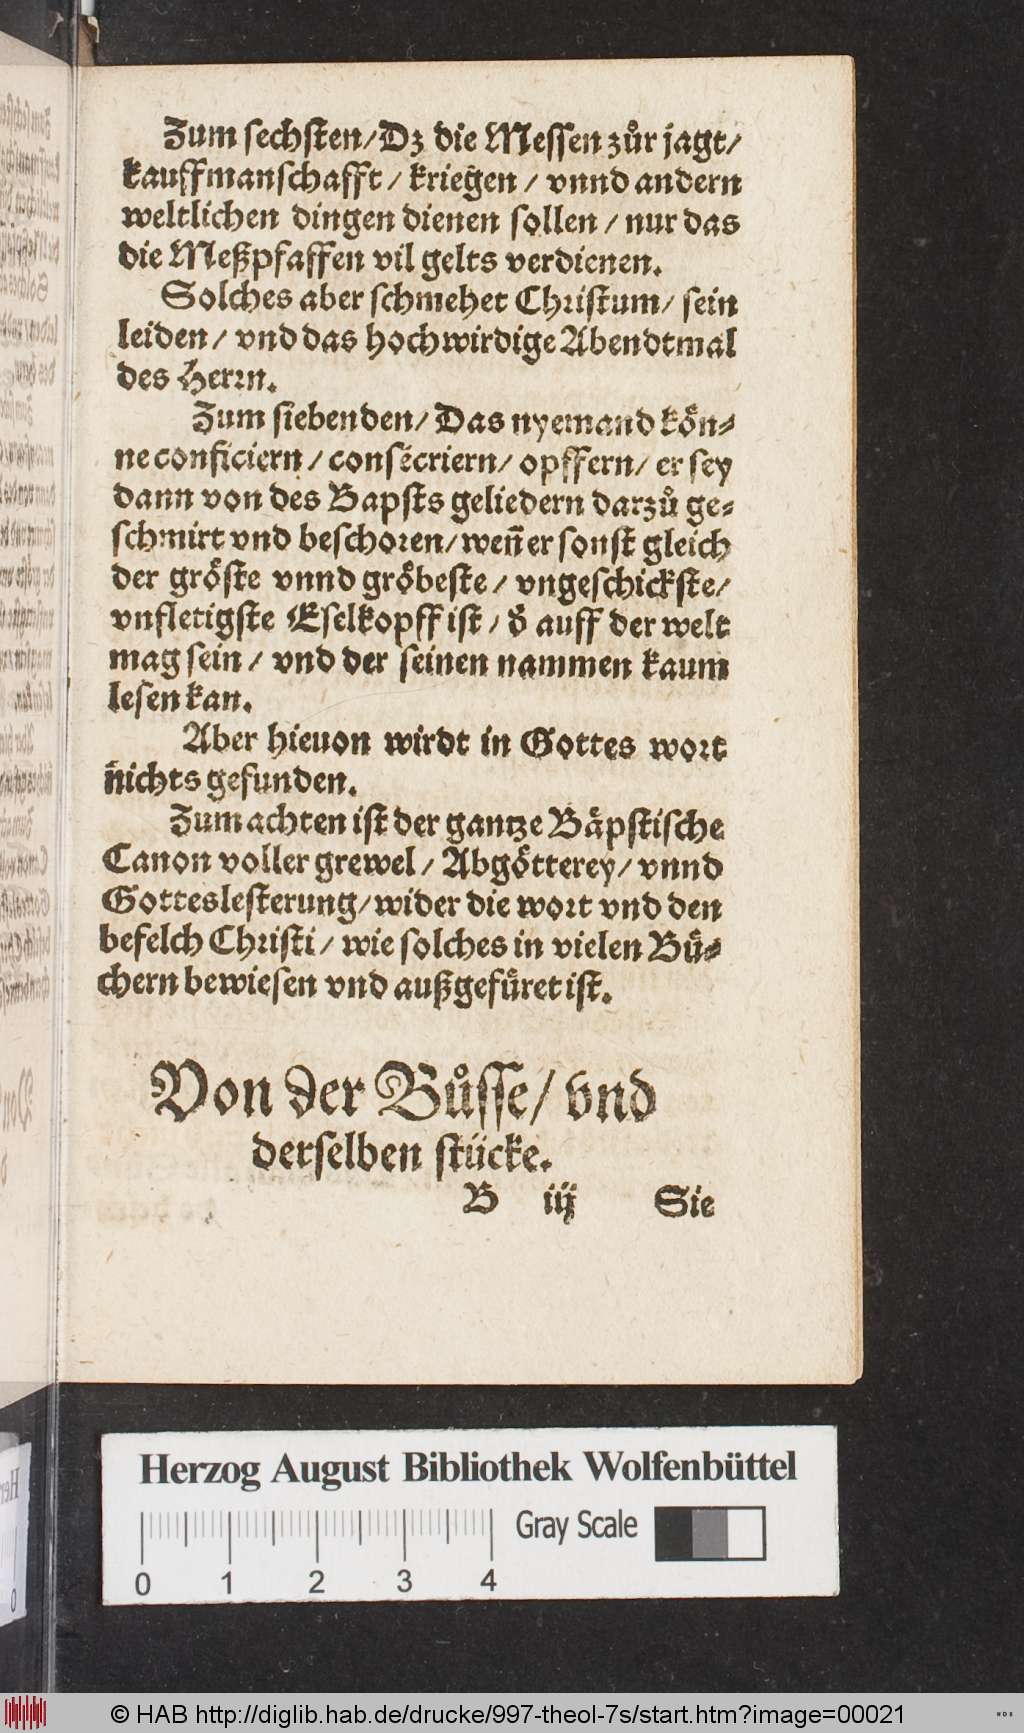 Zum sechsten/Dz die Messen zůr jagt/
kauffmanschafft / kriegen / vnnd andern
weltlichen dingen dienen sollen / nur das
die Meßpfaffen vil gelts verdienen.
Solches aber schmehet Christum/ sein
leiden/ vnd das hochwirdige Abendtmal
des Herrn.
Zum siebenden/ Das nyemand kön-
ne conficiern / consecriern/ opffern/ er sey
dann von des Bapsts geliedern darzů ge-
schmirt vnd beschoren/ weñ er sonst gleich
der gröste vnnd gröbeste / vngeschickste/
vnfletigste Eselkopff ist / d̄ auff der welt
mag sein / vnd der seinen nammen kaum
lesen kan.
Aber hieuon wirdt in Gottes wort
nichts gefunden.
Zum achten ist der gantze Bäpstische
Canon voller grewel / Abgötterey/ vnnd
Gotteslesterung/ wider die wort vnd den
befelch Christi / wie solches in vielen Bü-
chern bewiesen vnd außgefüret ist.
Von der Bůsse/ vnd
derselben stücke.
B iij Sie
Herzog August Bibliothek Wolfenbüttel
Gray Scale
0 1 2 3 4
© HAB http://diglib.hab.de/drucke/997-theol-7s/start.htm?image=00021